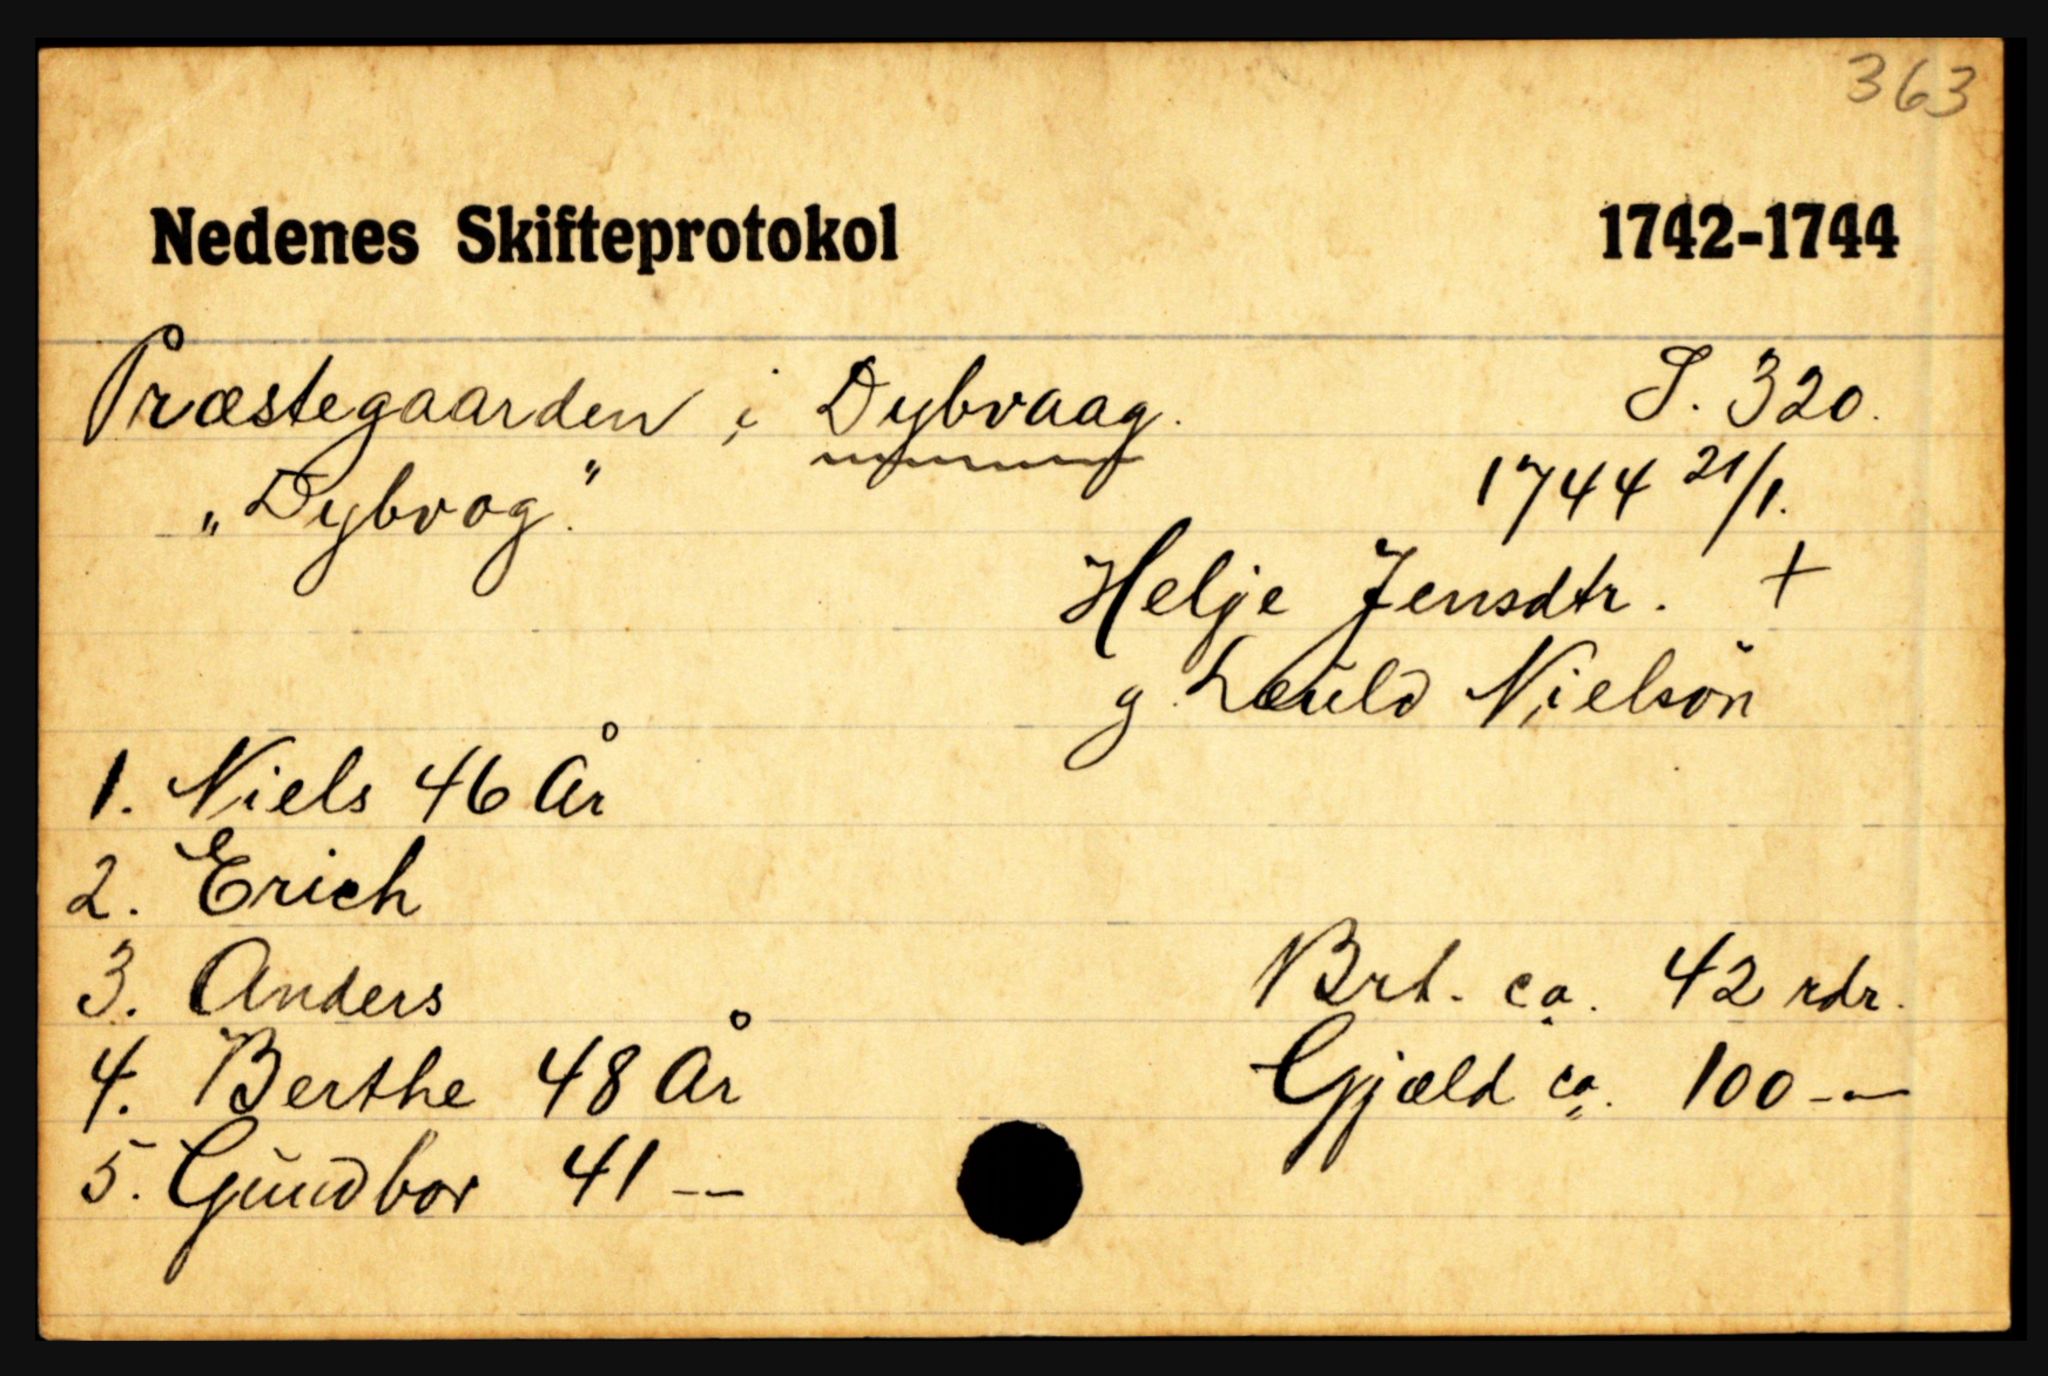 363
Nedenes Skifteprotokol 1742-1744
Præstegaarden i Dybvaag. S. 320.
„Dybvog." 1744 21/1.
Helje Jensdtr. +
g. Leuld Nielsön
1. Niels 46 År
2. Erich
3. Anders Brt. ca. 42 rdr.
4. Berthe 48 År Gjæld ca. 100 -—
5. Gundbor 41 -—